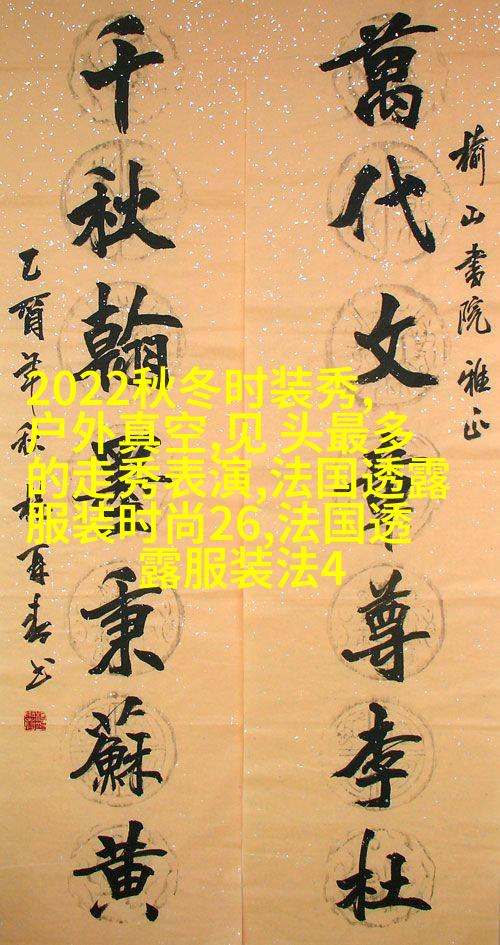 榆山書院雅正
萬代文章尊李杜
千秋翰墨秉蘇黄
乙酉年秋杨再春书
2022秋冬时装秀,
户外真空,见 头最多
的走秀表演,法国透露
服装时尚26,法国透
露服装法4